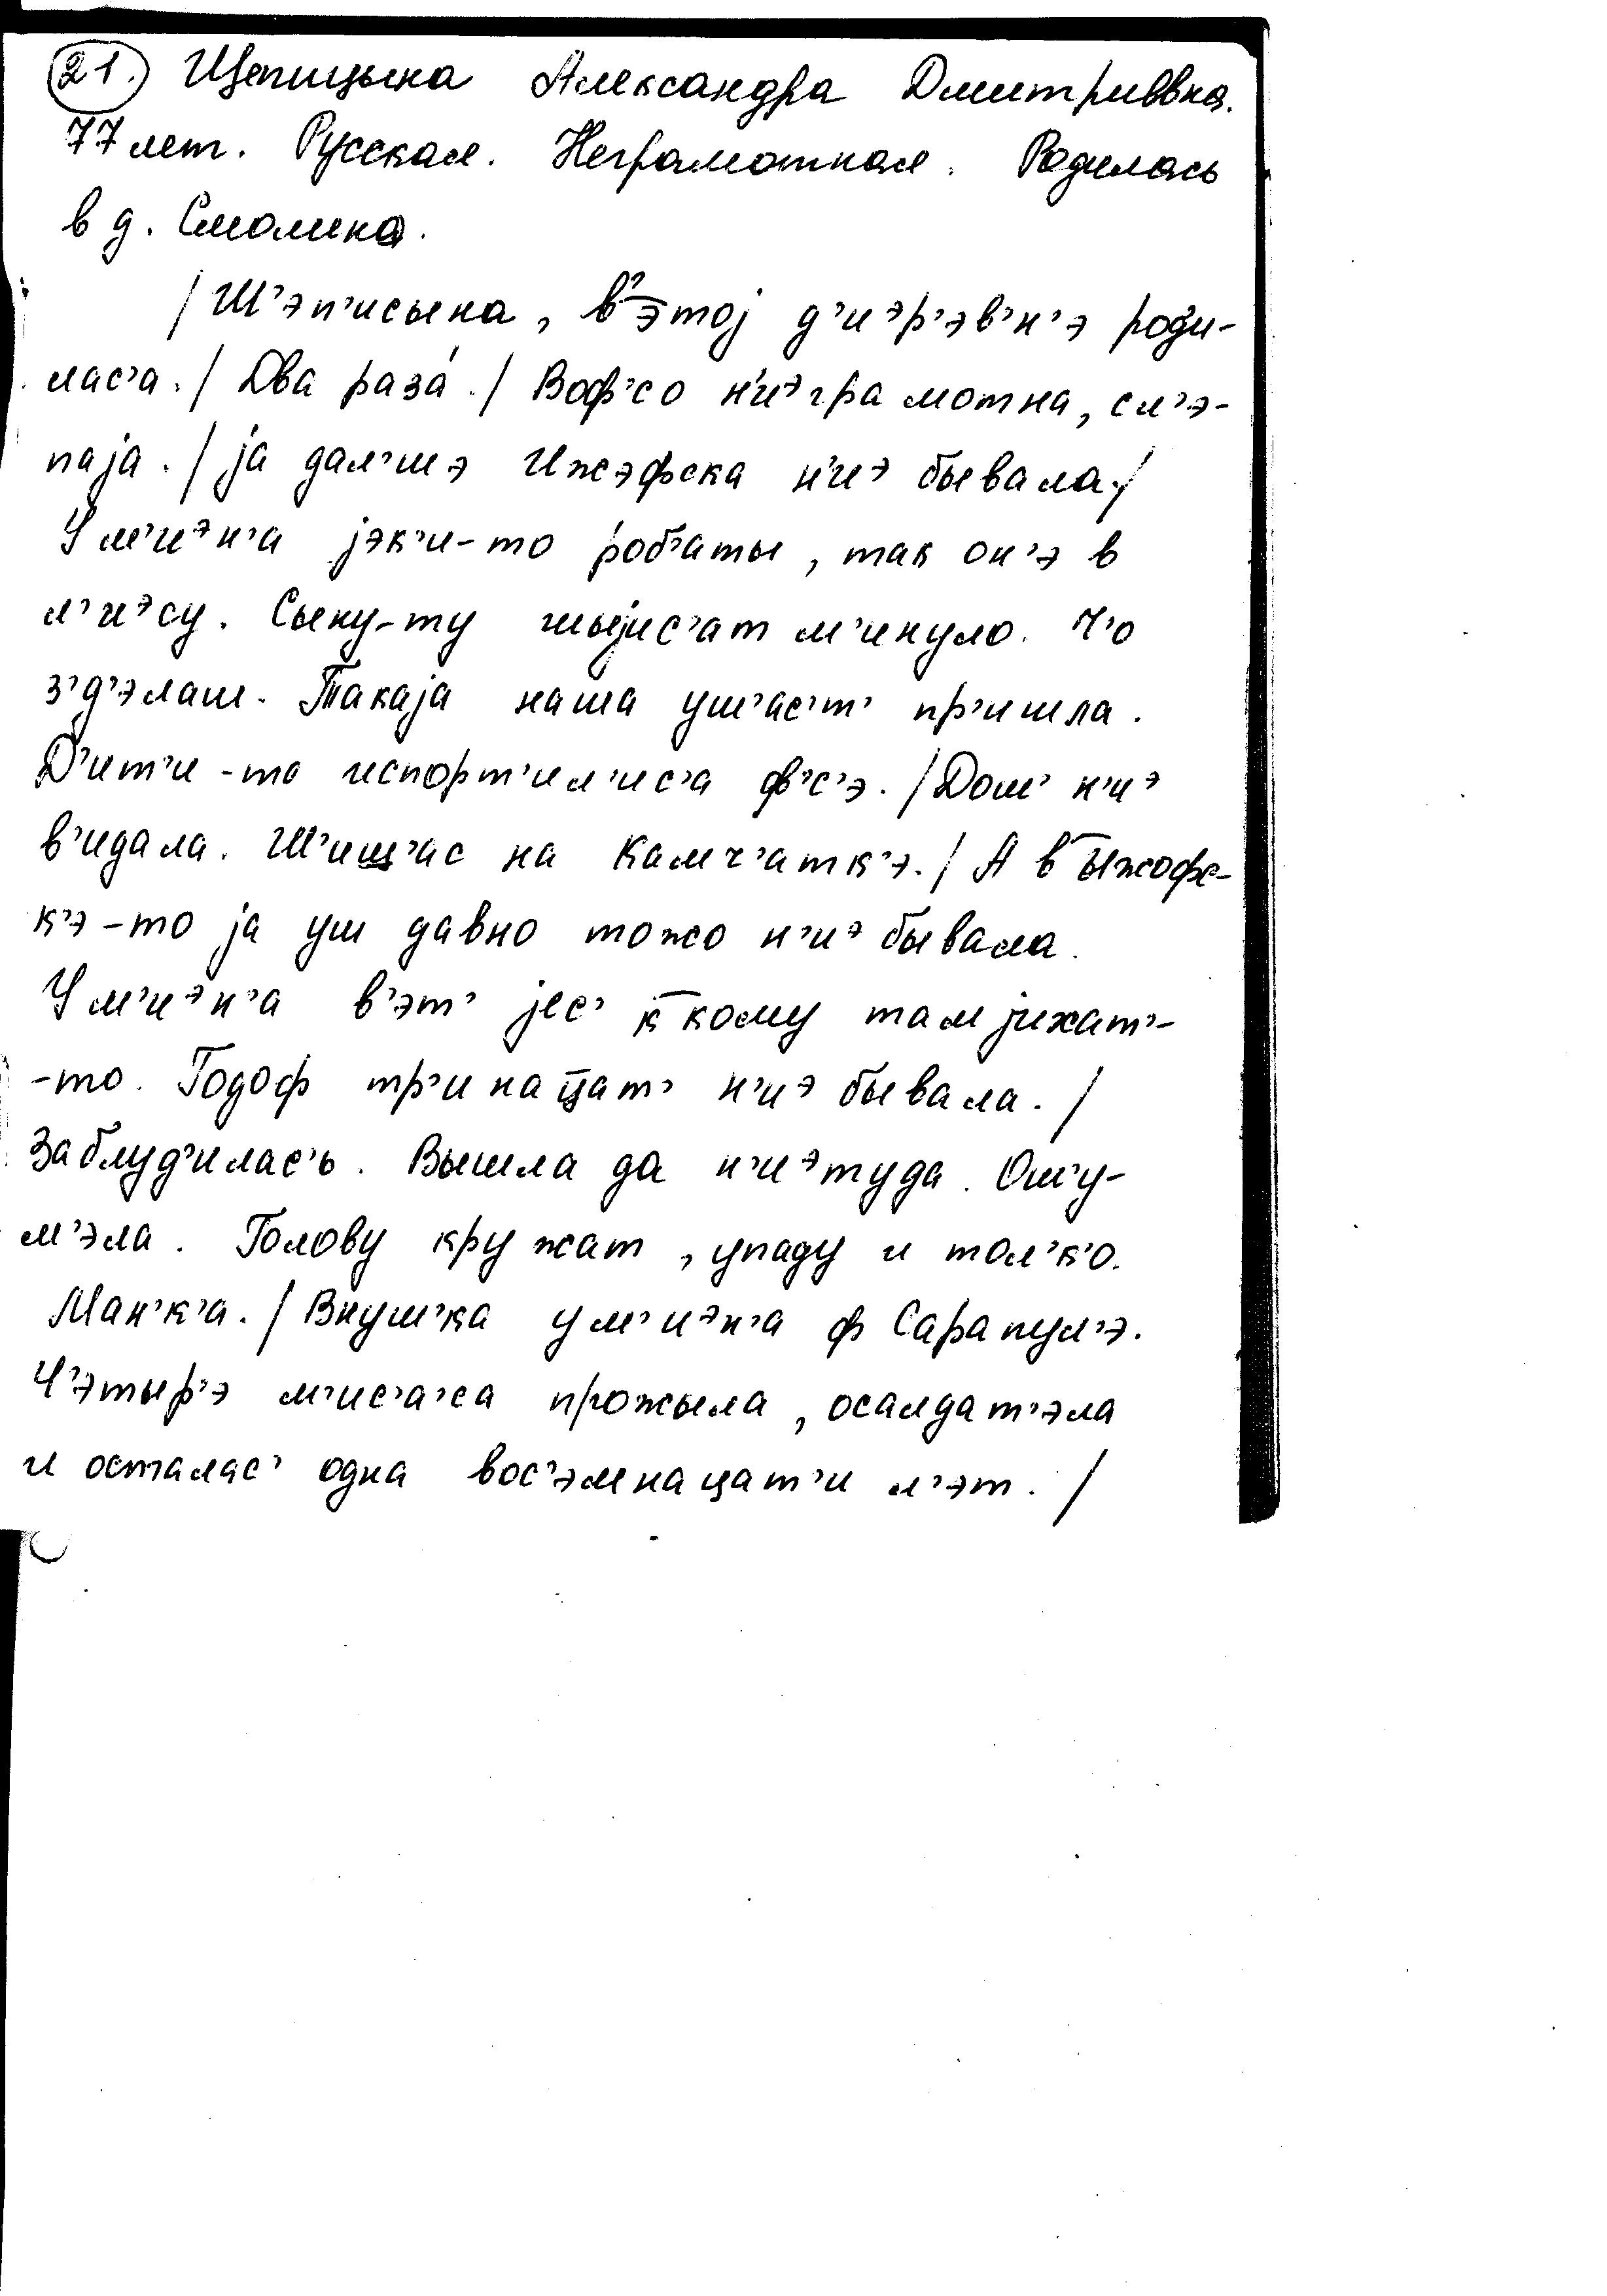 21. Щепицына Александра Дмитриевна.
77 лет. Русская. Неграмотная. Родилась
в д. Смолина.
/Ш'эп'исына, в'этоj д'иэр'эв'н'э роди-
лас'а./ Два раза́./ Воф'со н'иэграмотна, сл'э-
паjа./ jа дал'шэ Ижэфска н'иэ бывала./
У м'иэн'а jэк'и-то роб'аты, так он'э в
л'иэсу. Сыну-ту шыjис'ат м'инуло. Ч'о
з'д'элаш. Такаjа наша уш'ас'т' пр'ишла.
Д'ит'и-то испорт'ил'ис'а ф'с'э. /Дом' н'иэ
в'идала. Ш'ищ'ас на Камч'атк'э./ А в Ыжофс-
к'э-то jа уш давно тожо н'иэ бывала.
У м'иэн'а в'эт' jес' к кому там jихат'-
-то. Годоф тр'инац̄ат' н'иэ бывала. /
Заблуд'илас'ь. Вышла да н'иэтуда. Ош'у-
м'эла. Голову кружат, упаду и тол'к'о.
Ман'к'а./ Внуш'ка у м'иэн'а ф Сарапул'э.
Ч'этыр'э м'ис'а'са прожыла, осалдат'эла
и осталас' одна вос'эмнацат'и л'эт. /